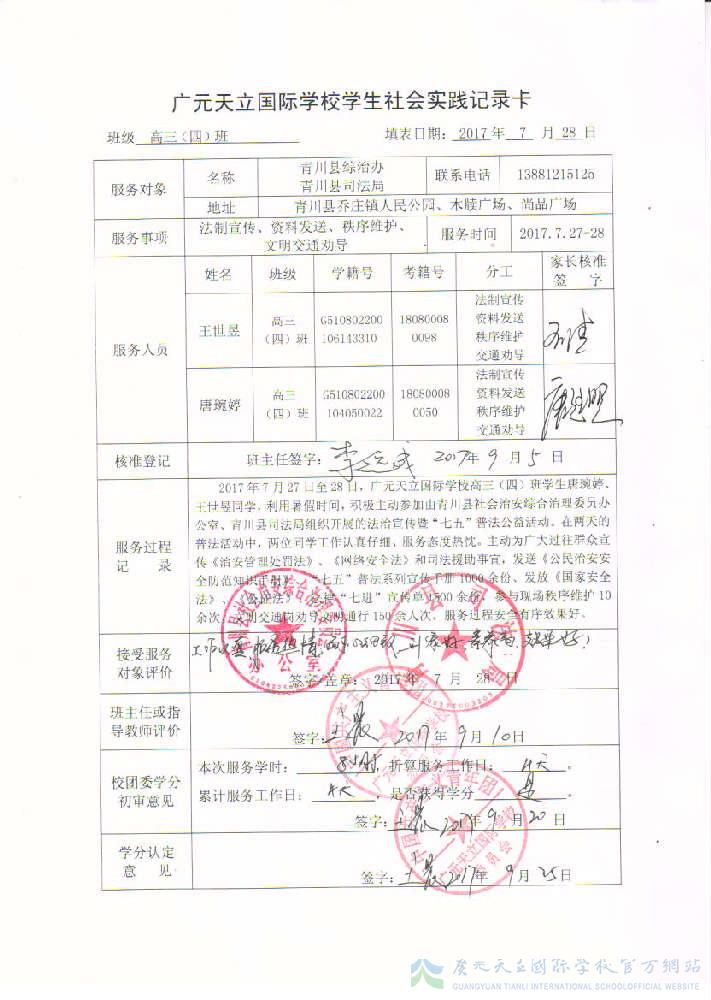 广元天立国际学校学生社会实践记录卡
班级 高三（四）班 填表日期： 2017 年 7 月 28 日
服务对象 名称 青川县综治办 联系电话 13881215125
青川县司法局
地址 青川县乔庄镇人民公园、木牍广场、尚品广场
服务事项 法制宣传、资料发送、秩序维护、 服务时间 2017.7.27-28
文明交通劝导
服务人员 姓名 班级 学籍号 考籍号 分工 家长核准
签 字
王世昱 高三 G510802200 18080008 法制宣传
（四）班 106143310 0098 资料发送
秩序维护
交通劝导
唐琬婷 高三 G510802200 18080008 法制宣传
（四）班 104050022 0050 资料发送
秩序维护
交通劝导
核准登记 班主任签字： 2017年 9 月 5 日
服务过程
记 录
2017 年 7 月 27 日至 28 日，广元天立国际学校高三（四）班学生唐琬婷、
王世昱同学，利用暑假时间，积极主动参加由青川县社会治安综合治理委员办
公室、青川县司法局组织开展的法治宣传暨“七五”普法公益活动。在两天的
普法活动中，两位同学工作认真仔细、服务态度热忱。主动为广大过往群众宣
传《治安管理处罚法》、《网络安全法》和司法援助事宜，发送《公民治安安
全防范知识手册》、“七五”普法系列宣传手册 1000 余份、发放《国家安全
法》、 “七进”宣传单 1500 余份，参与现场秩序维护 10
余次、文明交通劝导文明通行 150 余人次。服务过程安全有序效果好。
接受服务
对象评价
签字盖章：2017 年 7 月 28 日
班主任或指
导教师评价
签字： 2017年 9 月 10 日
校团委学分
初审意见
本次服务学时： 折算服务工作日： 天 。
累计服务工作日： 天 ，是否获得学分 是 。
签字： 2017年 9 月 20 日
学分认定
意 见
签字： 2017年 9 月 25 日
广元天立国际学校官方網站
GUANGYUAN TIANLI INTERNATIONAL SCHOOLOFFICIAL WEBSITE